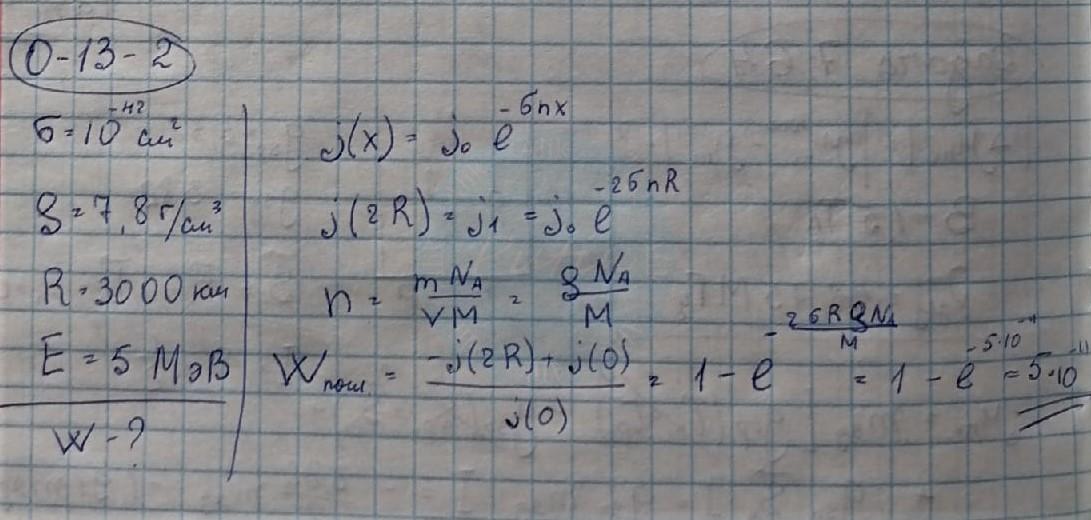 0-13-2
σ = 10^-42 см²
ρ = 7,8 г/см³
R = 3000 км
E = 5 МэВ
W - ?
j(x) = j₀ e^-σnx
j(2R) = j₁ = j₀ e^-2σnR
n = mN_A/VM = ρN_A/M
W погл. = (-j(2R) + j(0))/j(0) = 1 - e^-(2σRρN_A/M) = 1 - e^-5·10^-11 = 5·10^-11